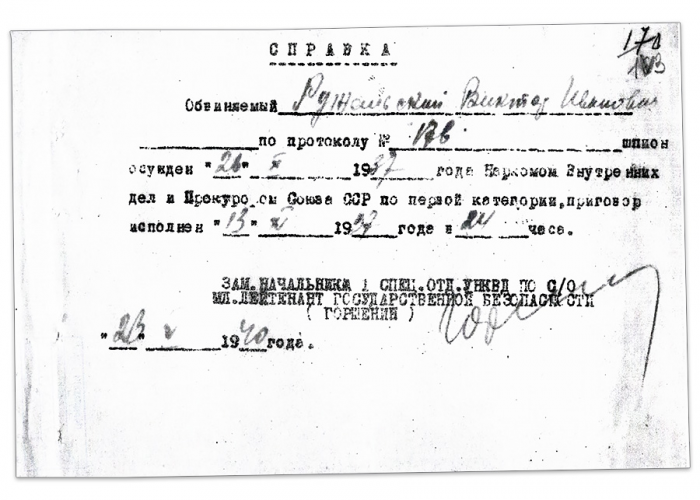 170
183
СПРАВКА
Обвиняемый Ружальский Виктор Иванович
по протоколу № 176 шпион
осужден "26" X 1937 года Наркомом Внутренних
дел и Прокуром Союза ССР по первой категории, приговор
исполнен "13" XI 1937 года в 24 часа.
ЗАМ.НАЧАЛЬНИКА 1 СПЕЦ.ОТД.УНКВД ПО С/О
МЛ.ЛЕЙТЕНАНТ ГОСУДАРСТВЕННОЙ БЕЗОПАСНОСТИ
( ГОРШЕНИН )
1940 года.